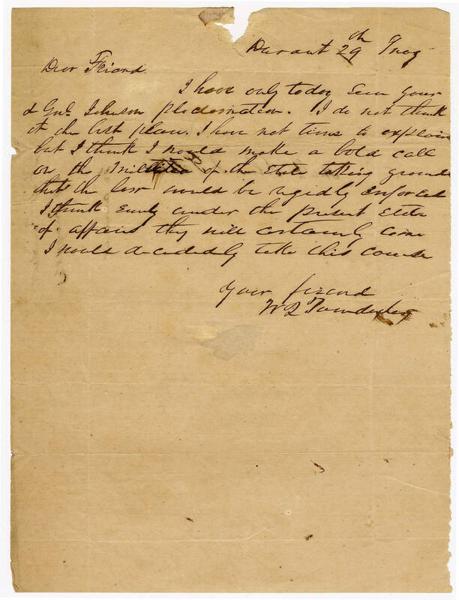 Durant 29th
Dear Friend
I have only today seen your
& Genl Johnson proclamation. I do not think
it the best plan. I have not time to explain
but I think I would make a bold call
on the Militia of the State taking ground
that the law would be rigidly enforced
I think every under the present state
of affairs they will certainly come
I would decidedly take this course
Your friend
W L